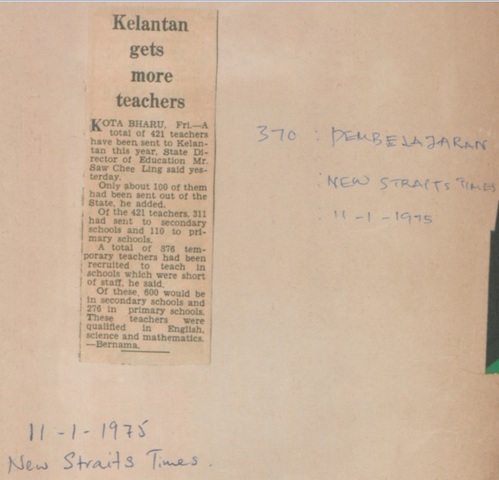 Kelantan
gets
more
teachers
KOTA BHARU, Fri.—A
total of 421 teachers
have been sent to Kelan-
tan this year, State Di-
rector of Education Mr.
Saw Chee Ling said yes-
terday.
Only about 100 of them
had been sent out of the
State, he added.
Of the 421 teachers, 311
had sent to secondary
schools and 110 to pri-
mary schools.
A total of 876 tem-
porary teachers had been
recruited to teach in
schools which were short
of staff, he said.
Of these, 600 would be
in secondary schools and
276 in primary schools.
These teachers were
qualified in English,
science and mathematics.
—Bernama.
370 : PEMBELAJARAN
: NEW STRAITS TIMES
: 11-1-1975
11-1-1975
New Straits Times.